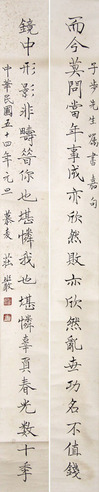 子步先生屬書嘉句
而今莫問當年事成亦欣然敗亦欣然亂世功名不值錢
鏡中形影非疇昔你也堪憐我也堪憐辜負春光數十年
中華民國五十四年元旦 慕陵 莊嚴